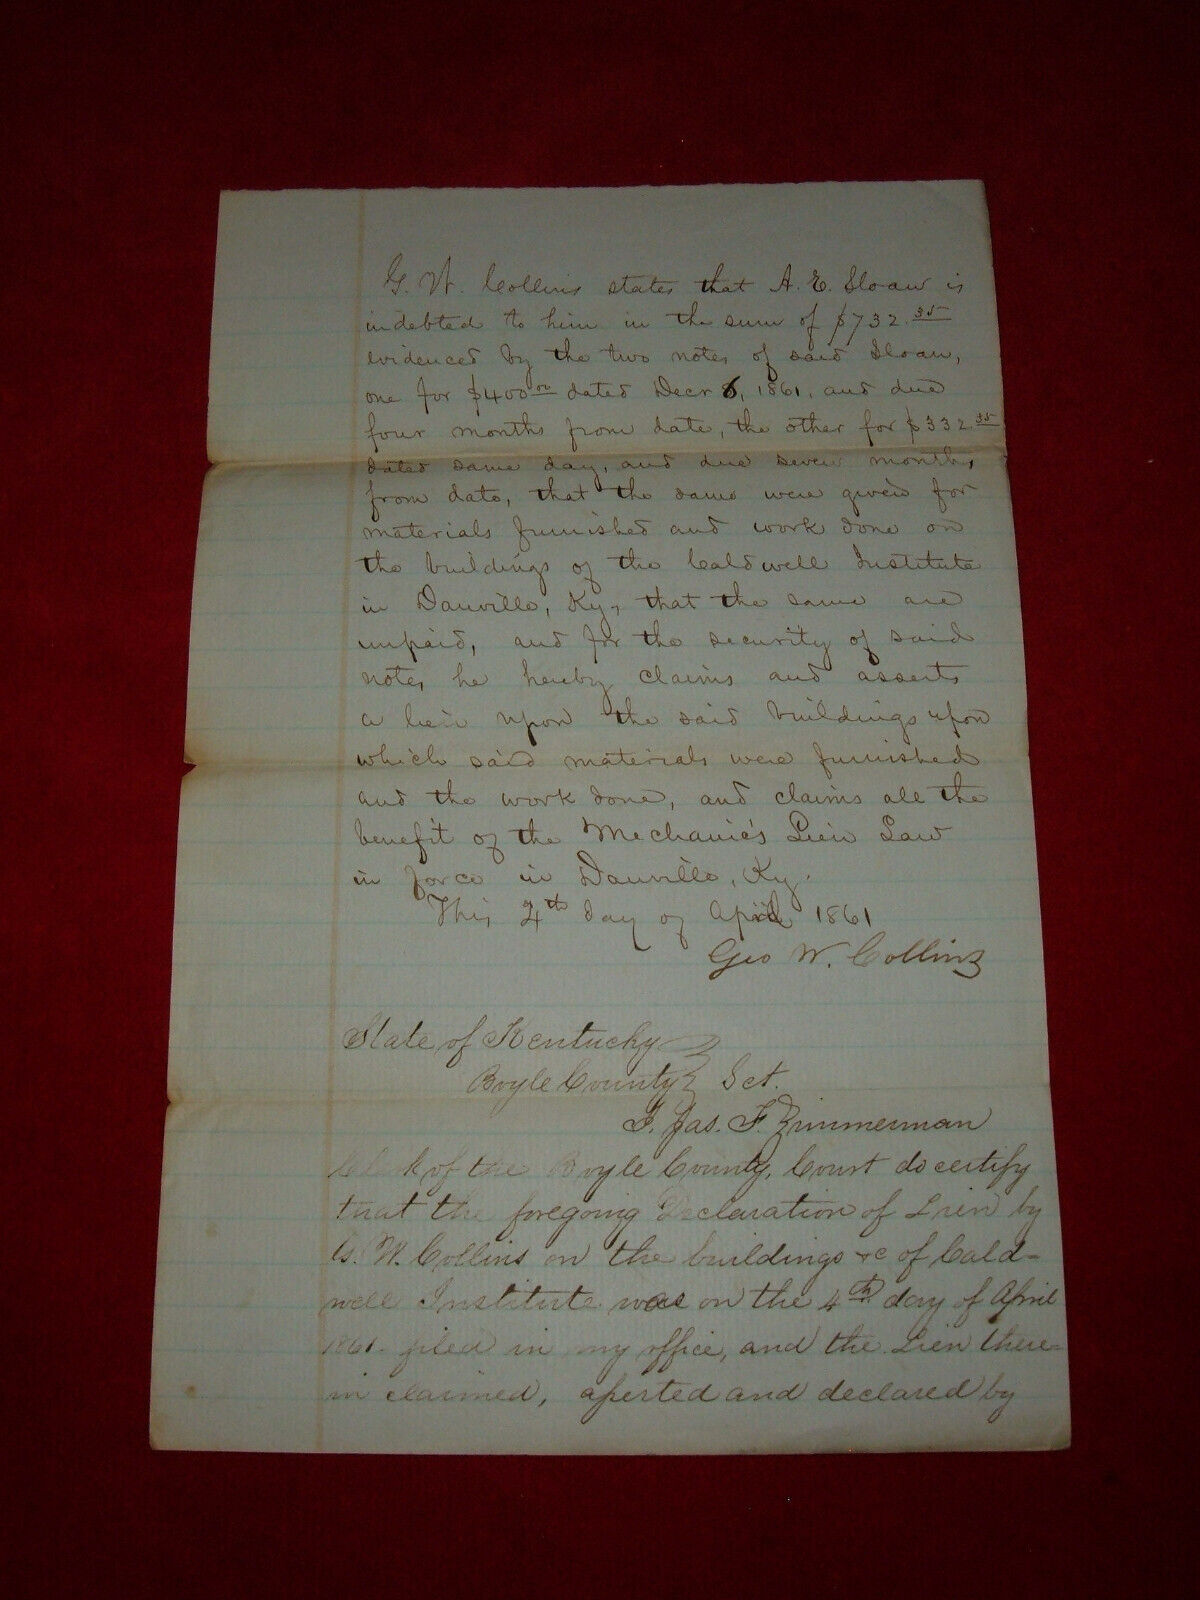 G. W. Collins states that A. E. Sloan is
indebted to him in the sum of $732.35
evidenced by the two notes of said Sloan,
one for $400.00 dated Decr 6, 1861, and due
four months from date, the other for $332.35
dated same day, and due seven months
from date, that the same were given for
materials furnished and work done on
the buildings of the Caldwell Institute
in Danville, Ky, that the same are
unpaid, and for the security of said
notes he hereby claims and asserts
a lien upon the said buildings upon
which said materials were furnished
and the work done, and claims all the
benefit of the Mechanic's Lien Law
in force in Danville, Ky.
This 4th day of April 1861
Geo W. Collins
State of Kentucky }
Boyle County } Sct.
I. Jas. F. Zimmerman
Clerk of the Boyle County, Court do certify
that the foregoing Declaration of Lien by
G. W. Collins on the buildings &c of Cald=
well Institute was on the 4th day of April
1861. filed in my office, and the Lien there=
in claimed, asserted and declared by